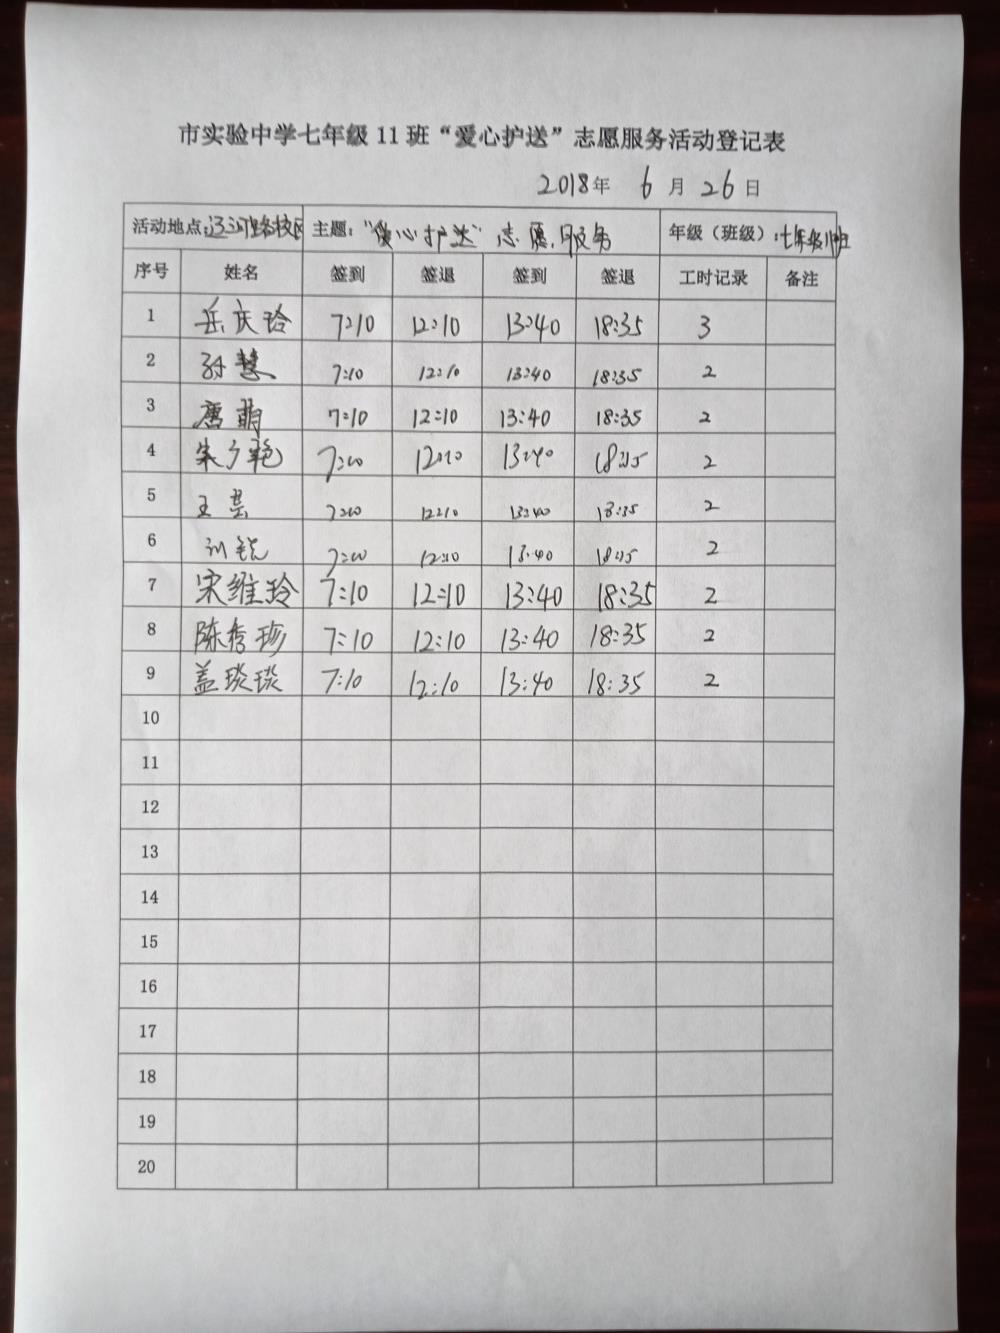 市实验中学七年级 11 班“爱心护送”志愿服务活动登记表
2018年 6 月 26 日
活动地点:辽河路校区 主题:“爱心护送”志愿服务 年级（班级）:七年级11班
序号 姓名 签到 签退 签到 签退 工时记录 备注
1 岳庆玲 7:10 12:10 13:40 18:35 3
2 孙慧 7:10 12:10 13:40 18:35 2
3 唐萌 7:10 12:10 13:40 18:35 2
4 朱少艳 7:10 12:10 13:40 18:35 2
5 王芸 7:10 12:10 13:40 18:35 2
6 刘锐 7:10 12:10 13:40 18:35 2
7 宋维玲 7:10 12:10 13:40 18:35 2
8 陈秀珍 7:10 12:10 13:40 18:35 2
9 盖琰琰 7:10 12:10 13:40 18:35 2
10
11
12
13
14
15
16
17
18
19
20